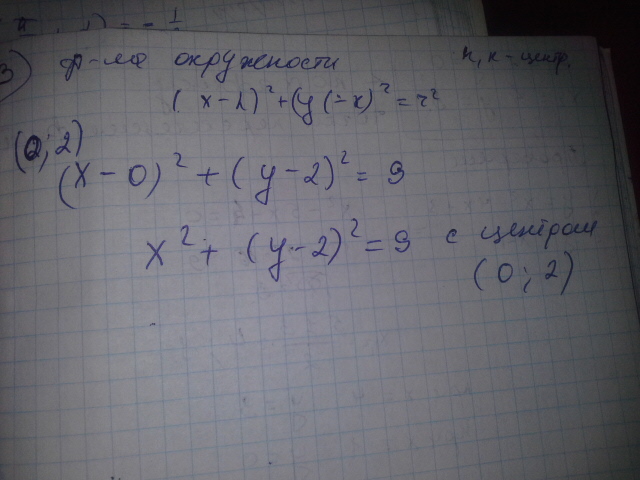 3) ф-ла окружености h, к - центр.
(x - h)² + (y (- к)² = r²
(0; 2)
(x - 0)² + (y - 2)² = 9
x² + (y - 2)² = 9 с центром
(0; 2)